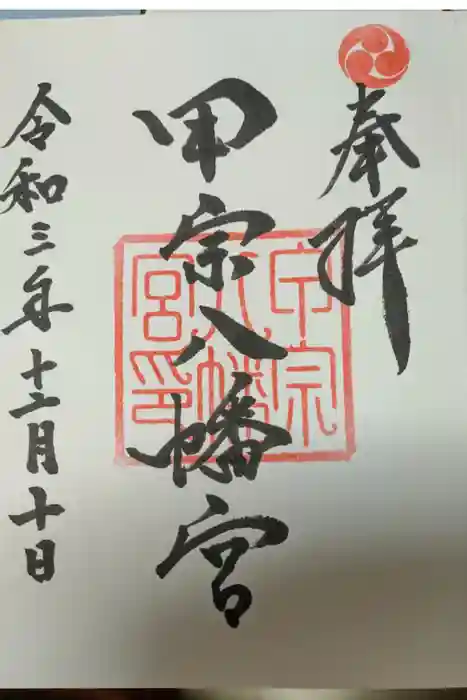 奉拝
甲宗八幡宮
甲宗
八幡
宮印
令和三年十二月十日